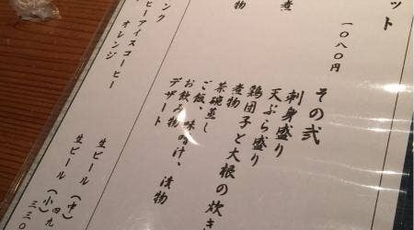 ット
一〇八〇円
煮
物
その弐
刺身盛り
天ぷら盛り
鶏団子と大根の炊き
煮物
茶碗蒸し
ご飯、味噌汁、漬物
お飲み物
デザート
ンク
ヒーアイスコーヒー
オレンジ
生ビール(中)四九
生ビール(小)三三〇